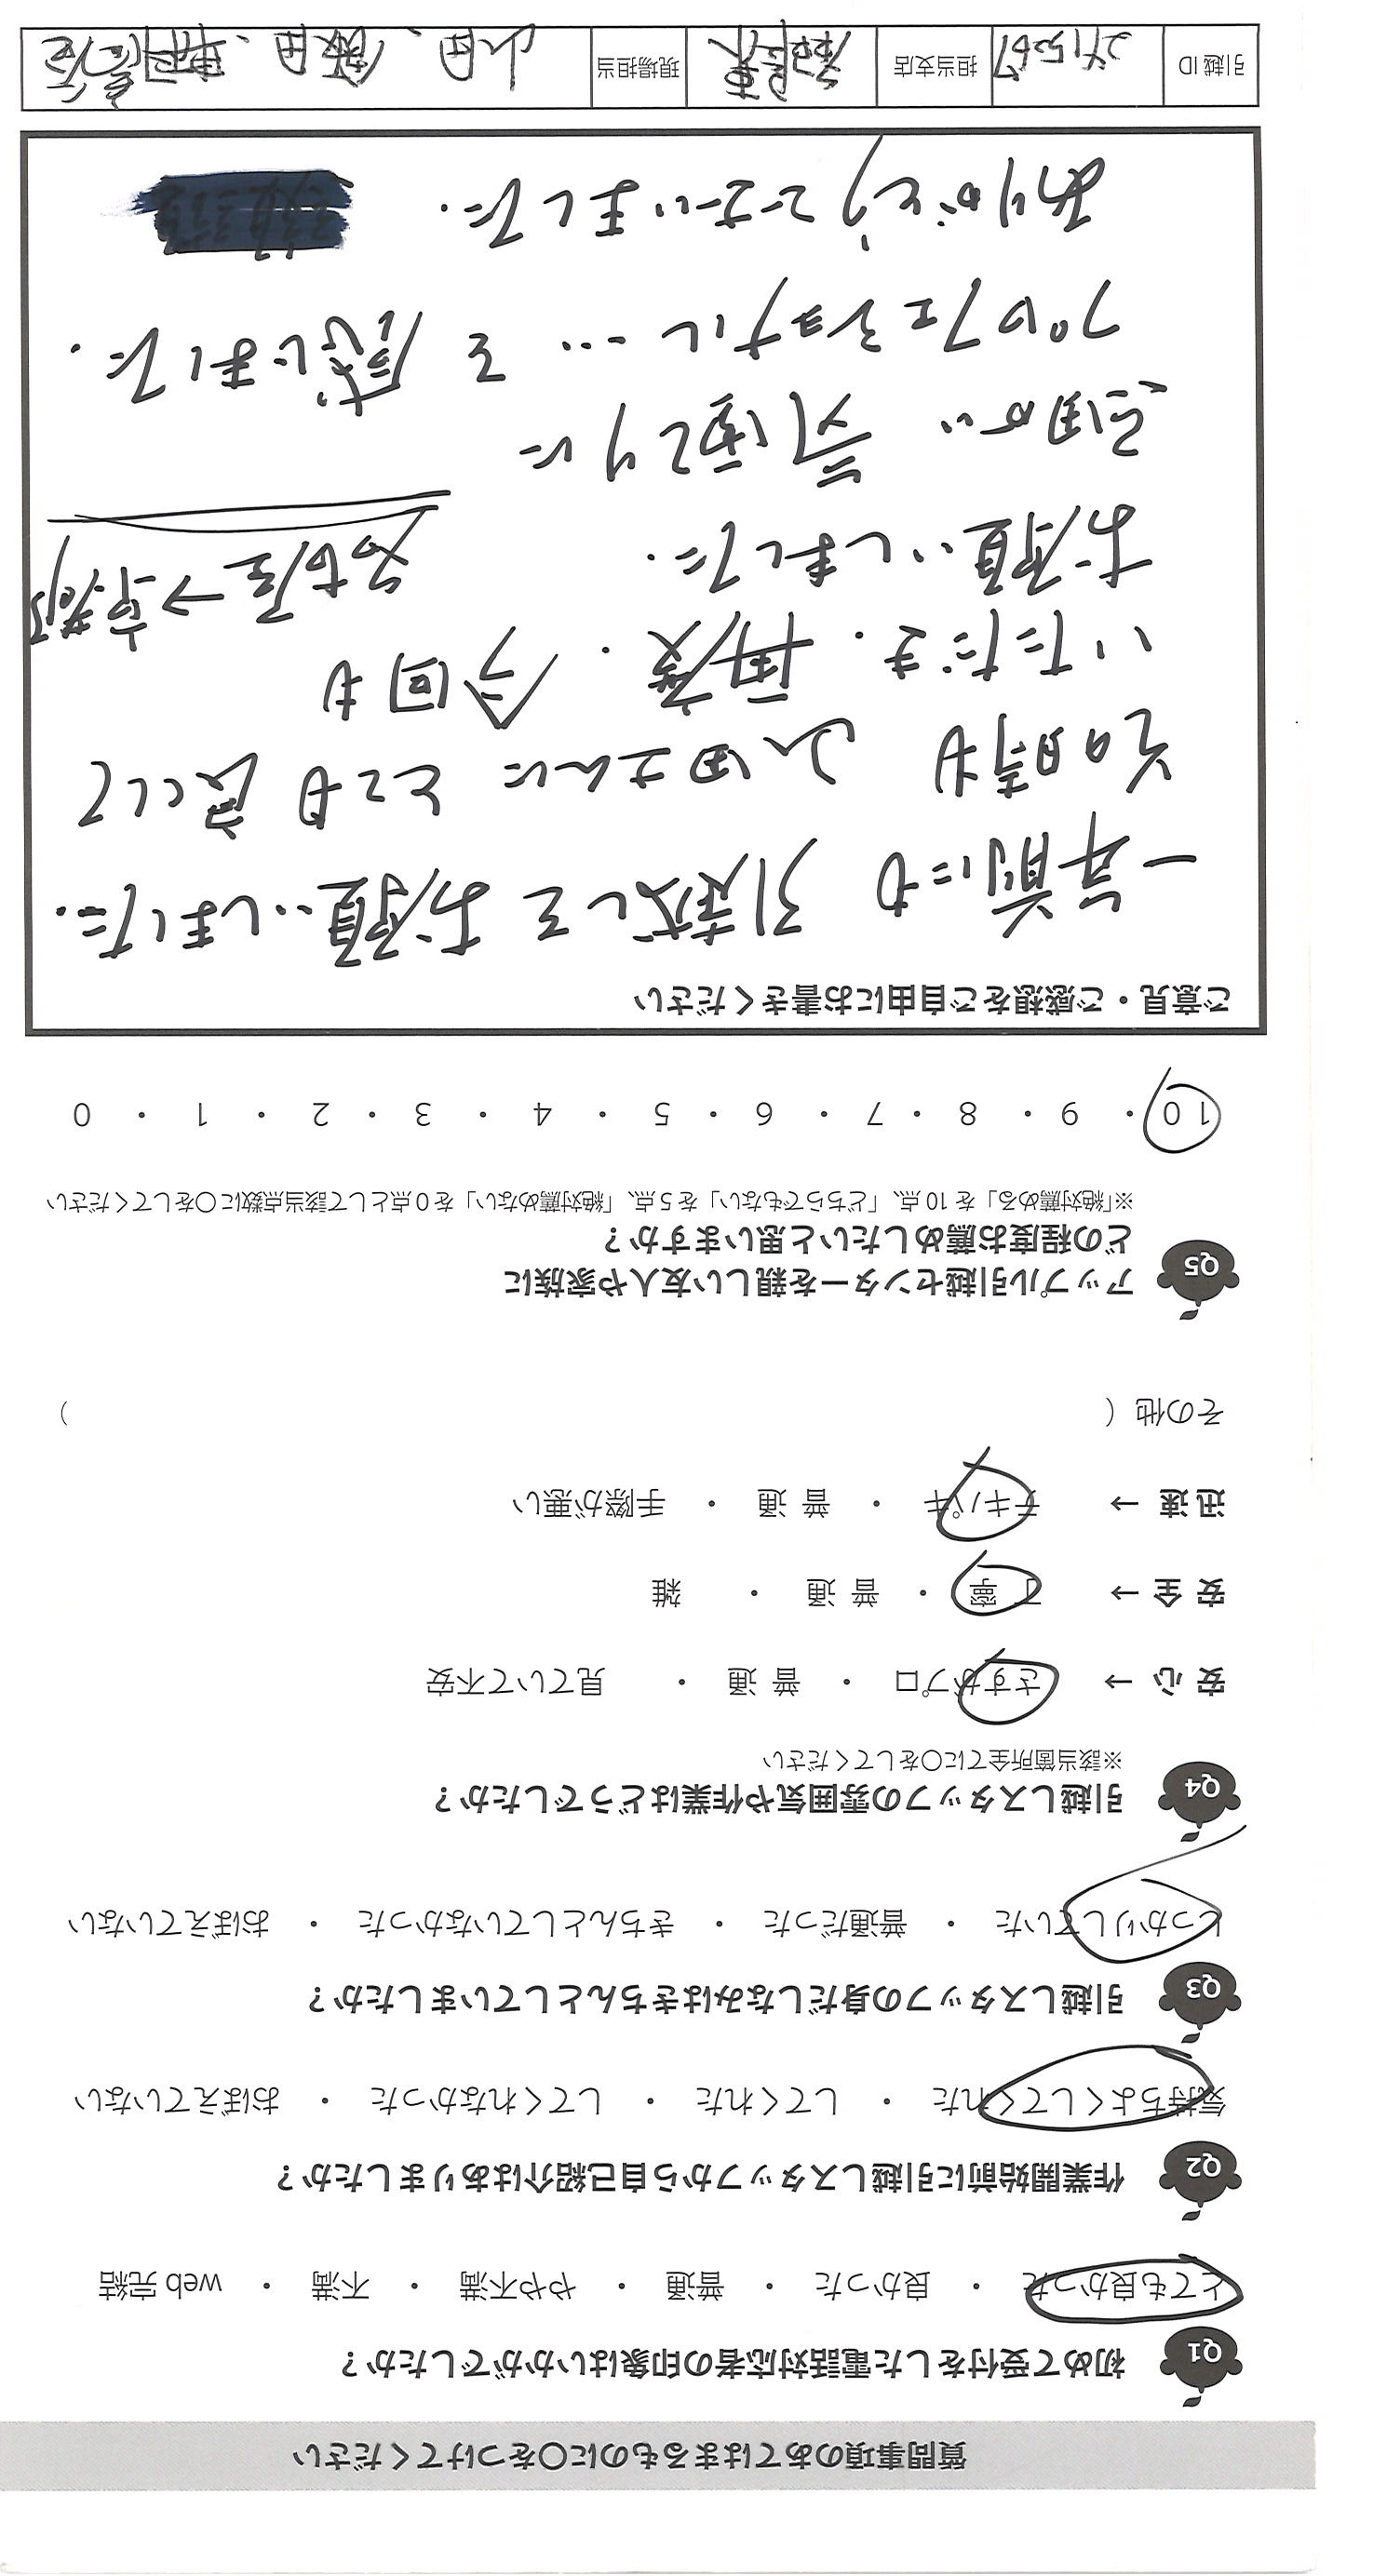 質問事項のあてはまるものに〇をつけてください
Q1 初めて受付をした電話対応者の印象はいかがでしたか？
とても良かった ・ 良かった ・ 普通 ・ やや不満 ・ 不満 ・ web 完結
Q2 作業開始前に引越しスタッフから自己紹介はありましたか？
気持ちよくしてくれた ・ してくれた ・ してくれなかった ・ おぼえていない
Q3 引越しスタッフの身だしなみはきちんとしていましたか？
しっかりしていた ・ 普通だった ・ きちんとしていなかった ・ おぼえていない
Q4 引越しスタッフの雰囲気や作業はどうでしたか？
※該当箇所全てに〇をしてください
安 心 → さすがプロ ・ 普 通 ・ 見ていて不安
安 全 → 丁 寧 ・ 普 通 ・ 雑
迅 速 → テキパキ ・ 普 通 ・ 手際が悪い
その他（ ）
Q5 アップル引越センターを親しい友人や家族に
どの程度お薦めしたいと思いますか？
※「絶対薦める」を 10 点、「どちらでもない」を 5 点、「絶対薦めない」を 0 点として該当点数に〇をしてください
10 ・ 9 ・ 8 ・ 7 ・ 6 ・ 5 ・ 4 ・ 3 ・ 2 ・ 1 ・ 0
ご意見・ご感想をご自由にお書きください
一年前にも 引越しを お願いしました.
その時も 山田さんに とても 良くして
いただき. 再度. 今回も
お願いしました. 名古屋→京都
プロフェショナル… を 感じました.
ありがとうございました.
引越 ID 担当支店 現場担当 山田、飯田、